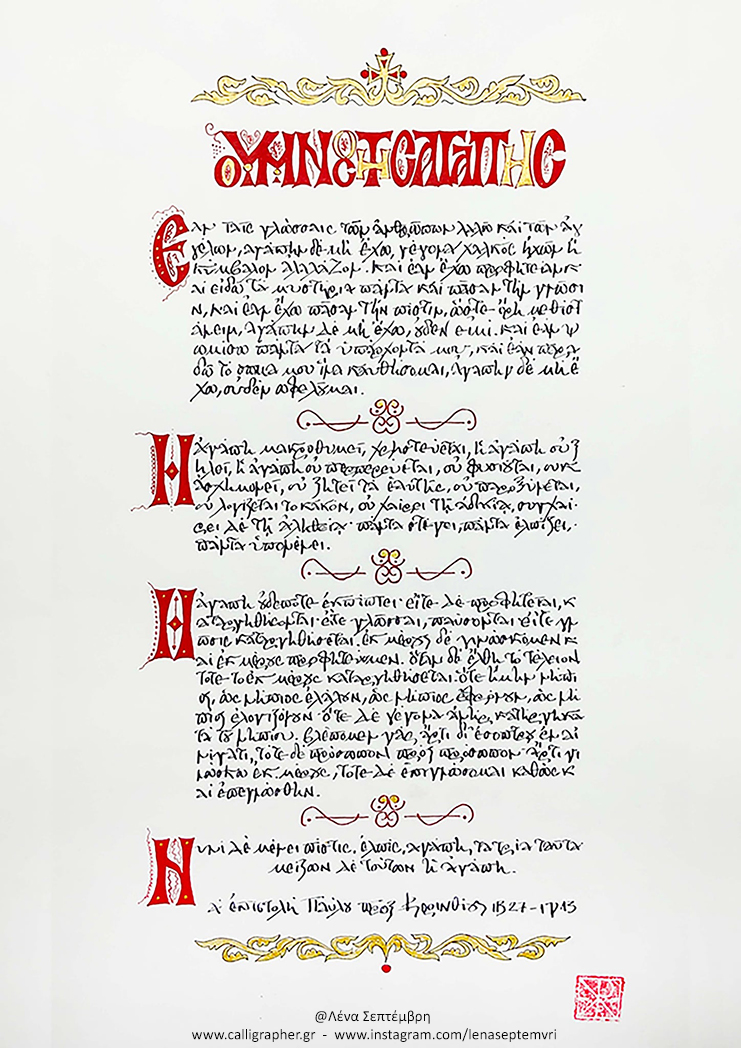 Ο ΥΜΝΟΣ ΤΗΣ ΑΓΑΠΗΣ
Εαν ταις γλώσσαις τῶν ἀνθρώπων λαλῶ καὶ τῶν ἀγ
γέλων, ἀγάπην δὲ μὴ ἔχω, γέγονα χαλκὸς ἠχῶν ἢ
κύμβαλον ἀλαλάζον. καὶ ἐὰν ἔχω προφητείαν κ
αὶ εἰδῶ τὰ μυστήρια πάντα καὶ πᾶσαν τὴν γνῶσι
ν, καὶ ἐὰν ἔχω πᾶσαν τὴν πίστιν, ὥστε ὄρη μεθιστ
άνειν, ἀγάπην δὲ μὴ ἔχω, οὐδέν εἰμι. καὶ ἐὰν ψ
ωμίσω πάντα τὰ ὑπάρχοντά μου, καὶ ἐὰν παραδ
δῶ τὸ σῶμα μου ἵνα καυθήσομαι, ἀγάπην δὲ μὴ ἔ
χω, οὐδὲν ὠφελοῦμαι.
Η ἀγάπη μακροθυμεῖ, χρηστεύεται, ἡ ἀγάπη οὐ ζ
ηλοῖ, ἡ ἀγάπη οὐ περπερεύεται, οὐ φυσιοῦται, οὐκ
ἀσχημονεῖ, οὐ ζητεῖ τὰ ἑαυτῆς, οὐ παροξύνεται,
οὐ λογίζεται το κακόν, οὐ χαίρει τῇ ἀδικίᾳ, συγχαί
ρει δὲ τῇ ἀληθείᾳ· πάντα στέγει, πάντα ἐλπίζει,
πάντα ὑπομένει.
Η ἀγάπη οὐδέποτε ἐκπίπτει· εἴτε δὲ προφητεῖαι, κ
αταργηθήσονται· εἴτε γλῶσσαι, παύσονται· εἴτε γν
ῶσις καταργηθήσεται. ἐκ μέρους δὲ γινώσκομεν κ
αὶ ἐκ μέρους προφητεύομεν. ὅταν δὲ ἔλθῃ τὸ τέλειον
τότε τὸ ἐκ μέρους καταργηθήσεται. ὅτε ἤμην νήπι
ος, ὡς νήπιος ἐλάλουν, ὡς νήπιος ἐφρόνουν, ὡς νή
πιος ἐλογιζόμην· ὅτε δὲ γέγονα ἀνήρ, κατήργηκα
τὰ τοῦ νηπίου. βλέπομεν γὰρ ἄρτι δι' ἐσόπτρου ἐν αἰ
νίγματι, τότε δὲ πρόσωπον πρὸς πρόσωπον· ἄρτι γι
νώσκω ἐκ μέρους, τότε δὲ ἐπιγνώσομαι καθὼς κ
αὶ ἐπεγνώσθην.
Νυνὶ δὲ μένει πίστις, ἐλπίς, ἀγάπη, τὰ τρία ταῦτα·
μείζων δὲ τούτων ἡ ἀγάπη.
Α' ἐπιστολή Παύλου πρὸς Κορινθίους
@Λένα Σεπτέμβρη
www.calligrapher.gr - www.instagram.com/lenaseptemvri